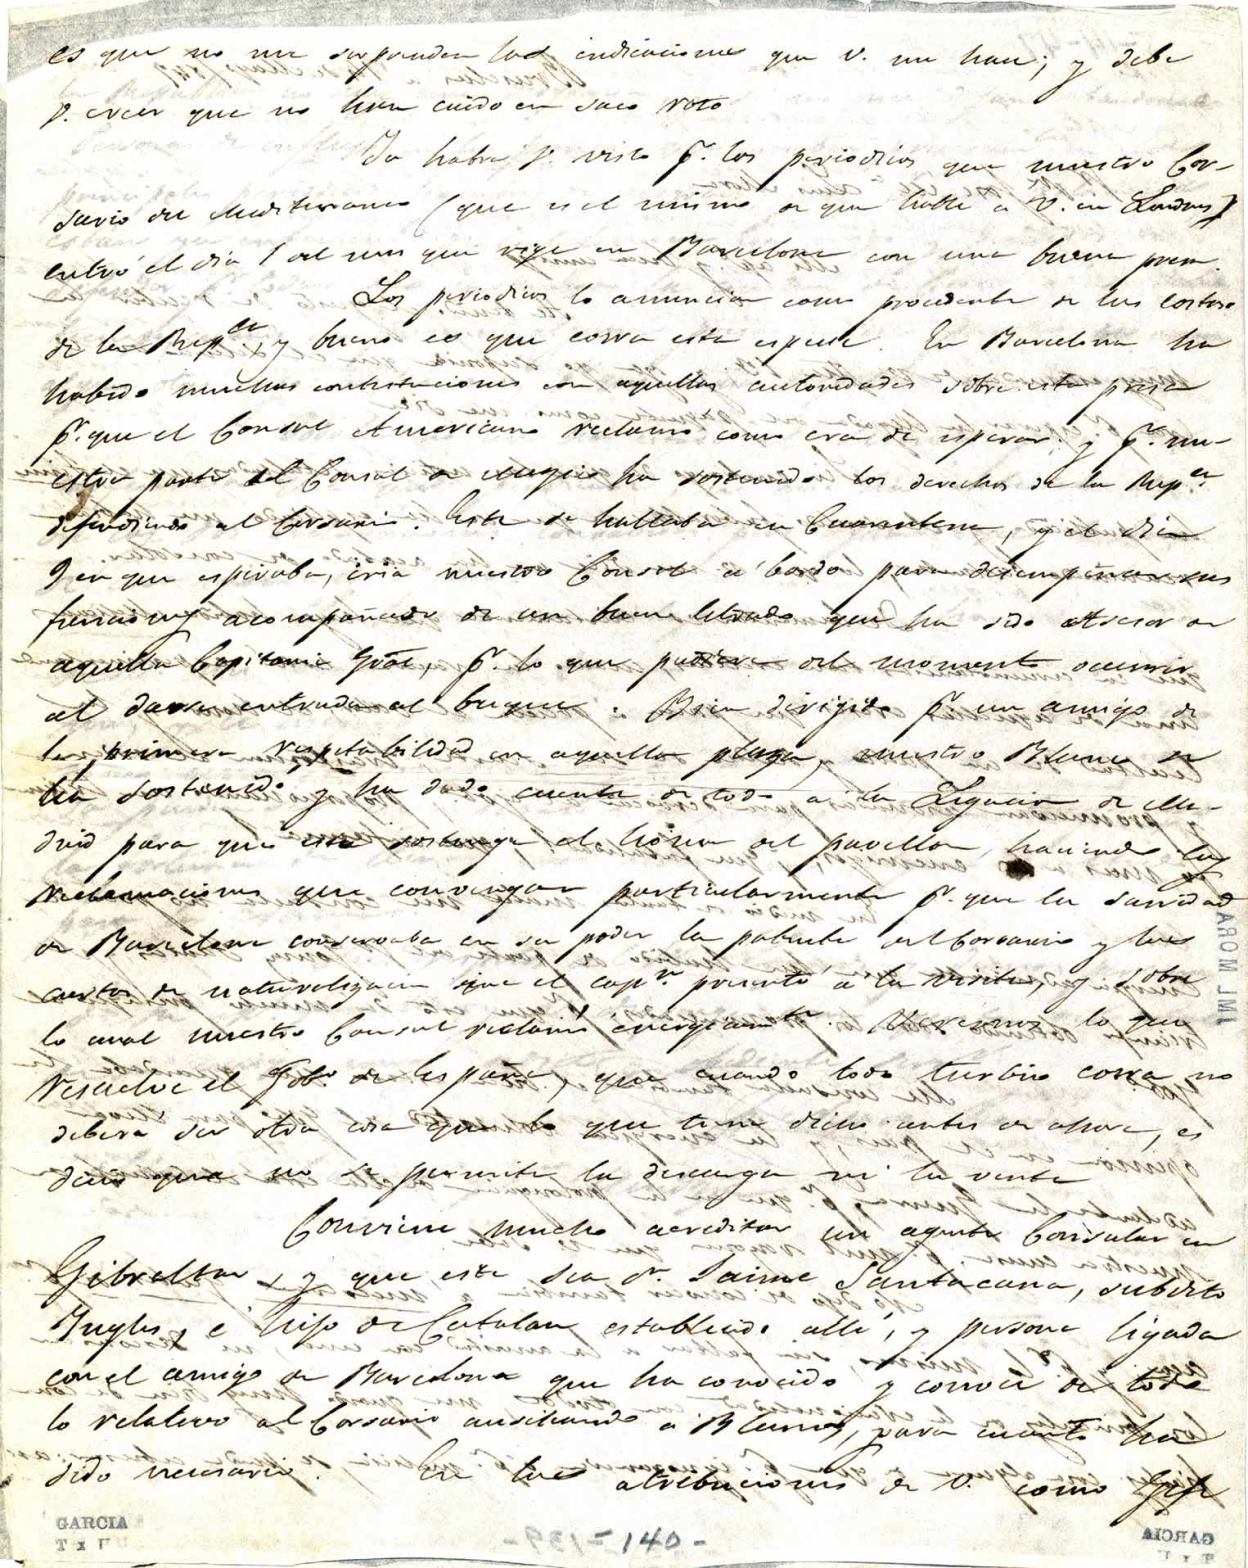 es que no me sorprenden las indicaciones que V. me hace; y debe
V. creer que no han caido en saco roto
Ya habra V. visto pr. los periodicos, que nuestro Cor-
sario del Mediterraneo (que es el mismo de que hablé a V. en Londres)
entró el dia 1 del mes que rige en Barcelona con una buena presa.
Los periodicos lo anuncian como procedente de las costas
de la Repca. y bueno es que corra esta especie. En Barcelona ha
habido muchas contestaciones con aquellas autoridades sobre esta presa
pr. que el Consul Americano reclamó como era de esperar; y pr. nu-
estra parte el Consul de Megico ha sostenido los derechos de la Repca.
defendiendo al Corsario. Este se hallaba en Cuarentena, y el dia
9 en que espiraba, iria nuestro Consul a bordo para desempeñar sus
funciones acompañado de un buen letrado que ha sido Asesor de
aquella Capitania Gral, pr. lo que pudiera del momento ocurrir
al darse entrada al buque. Bien dirigido pr. un amigo de
la primera respetabilidad en aquella plaza, nuestro Blanco se
ha sostenido, y ha dado cuenta de todo a la Legacion de Ma-
drid para que esta sostenga el honor del pavellon, haciendo las
reclamaciones que convengan particularmente pr. que la Sanidad
de Barcelona conservaba en su poder la patente del Corsario y las
cartas de naturalizacion que el capn. presentó a la visita, y sobre
lo cual nuestro Consul reclamó energicamte. Veremos lo que
resuelve el Gobo. de España, que cuando todo turbio corra no
debera ser otra cosa que lo que tiene dicho antes de ahora, es
decir que no se permite la descarga ni la venta
Conviene mucho acreditar un agente Consular en
Gibraltar y que este sea Dn. Jaime Santacana, subdito
Ingles, e hijo de Catalan establecido alli, y persona ligada
con el amigo de Barcelona que ha conocido y conoce de todo
lo relativo al Corsario ausiliando a Blanco, para cuanto ha
sido necesario. En las atribuciones de V. como Gefe
GARCIA
- 139 - 140 -